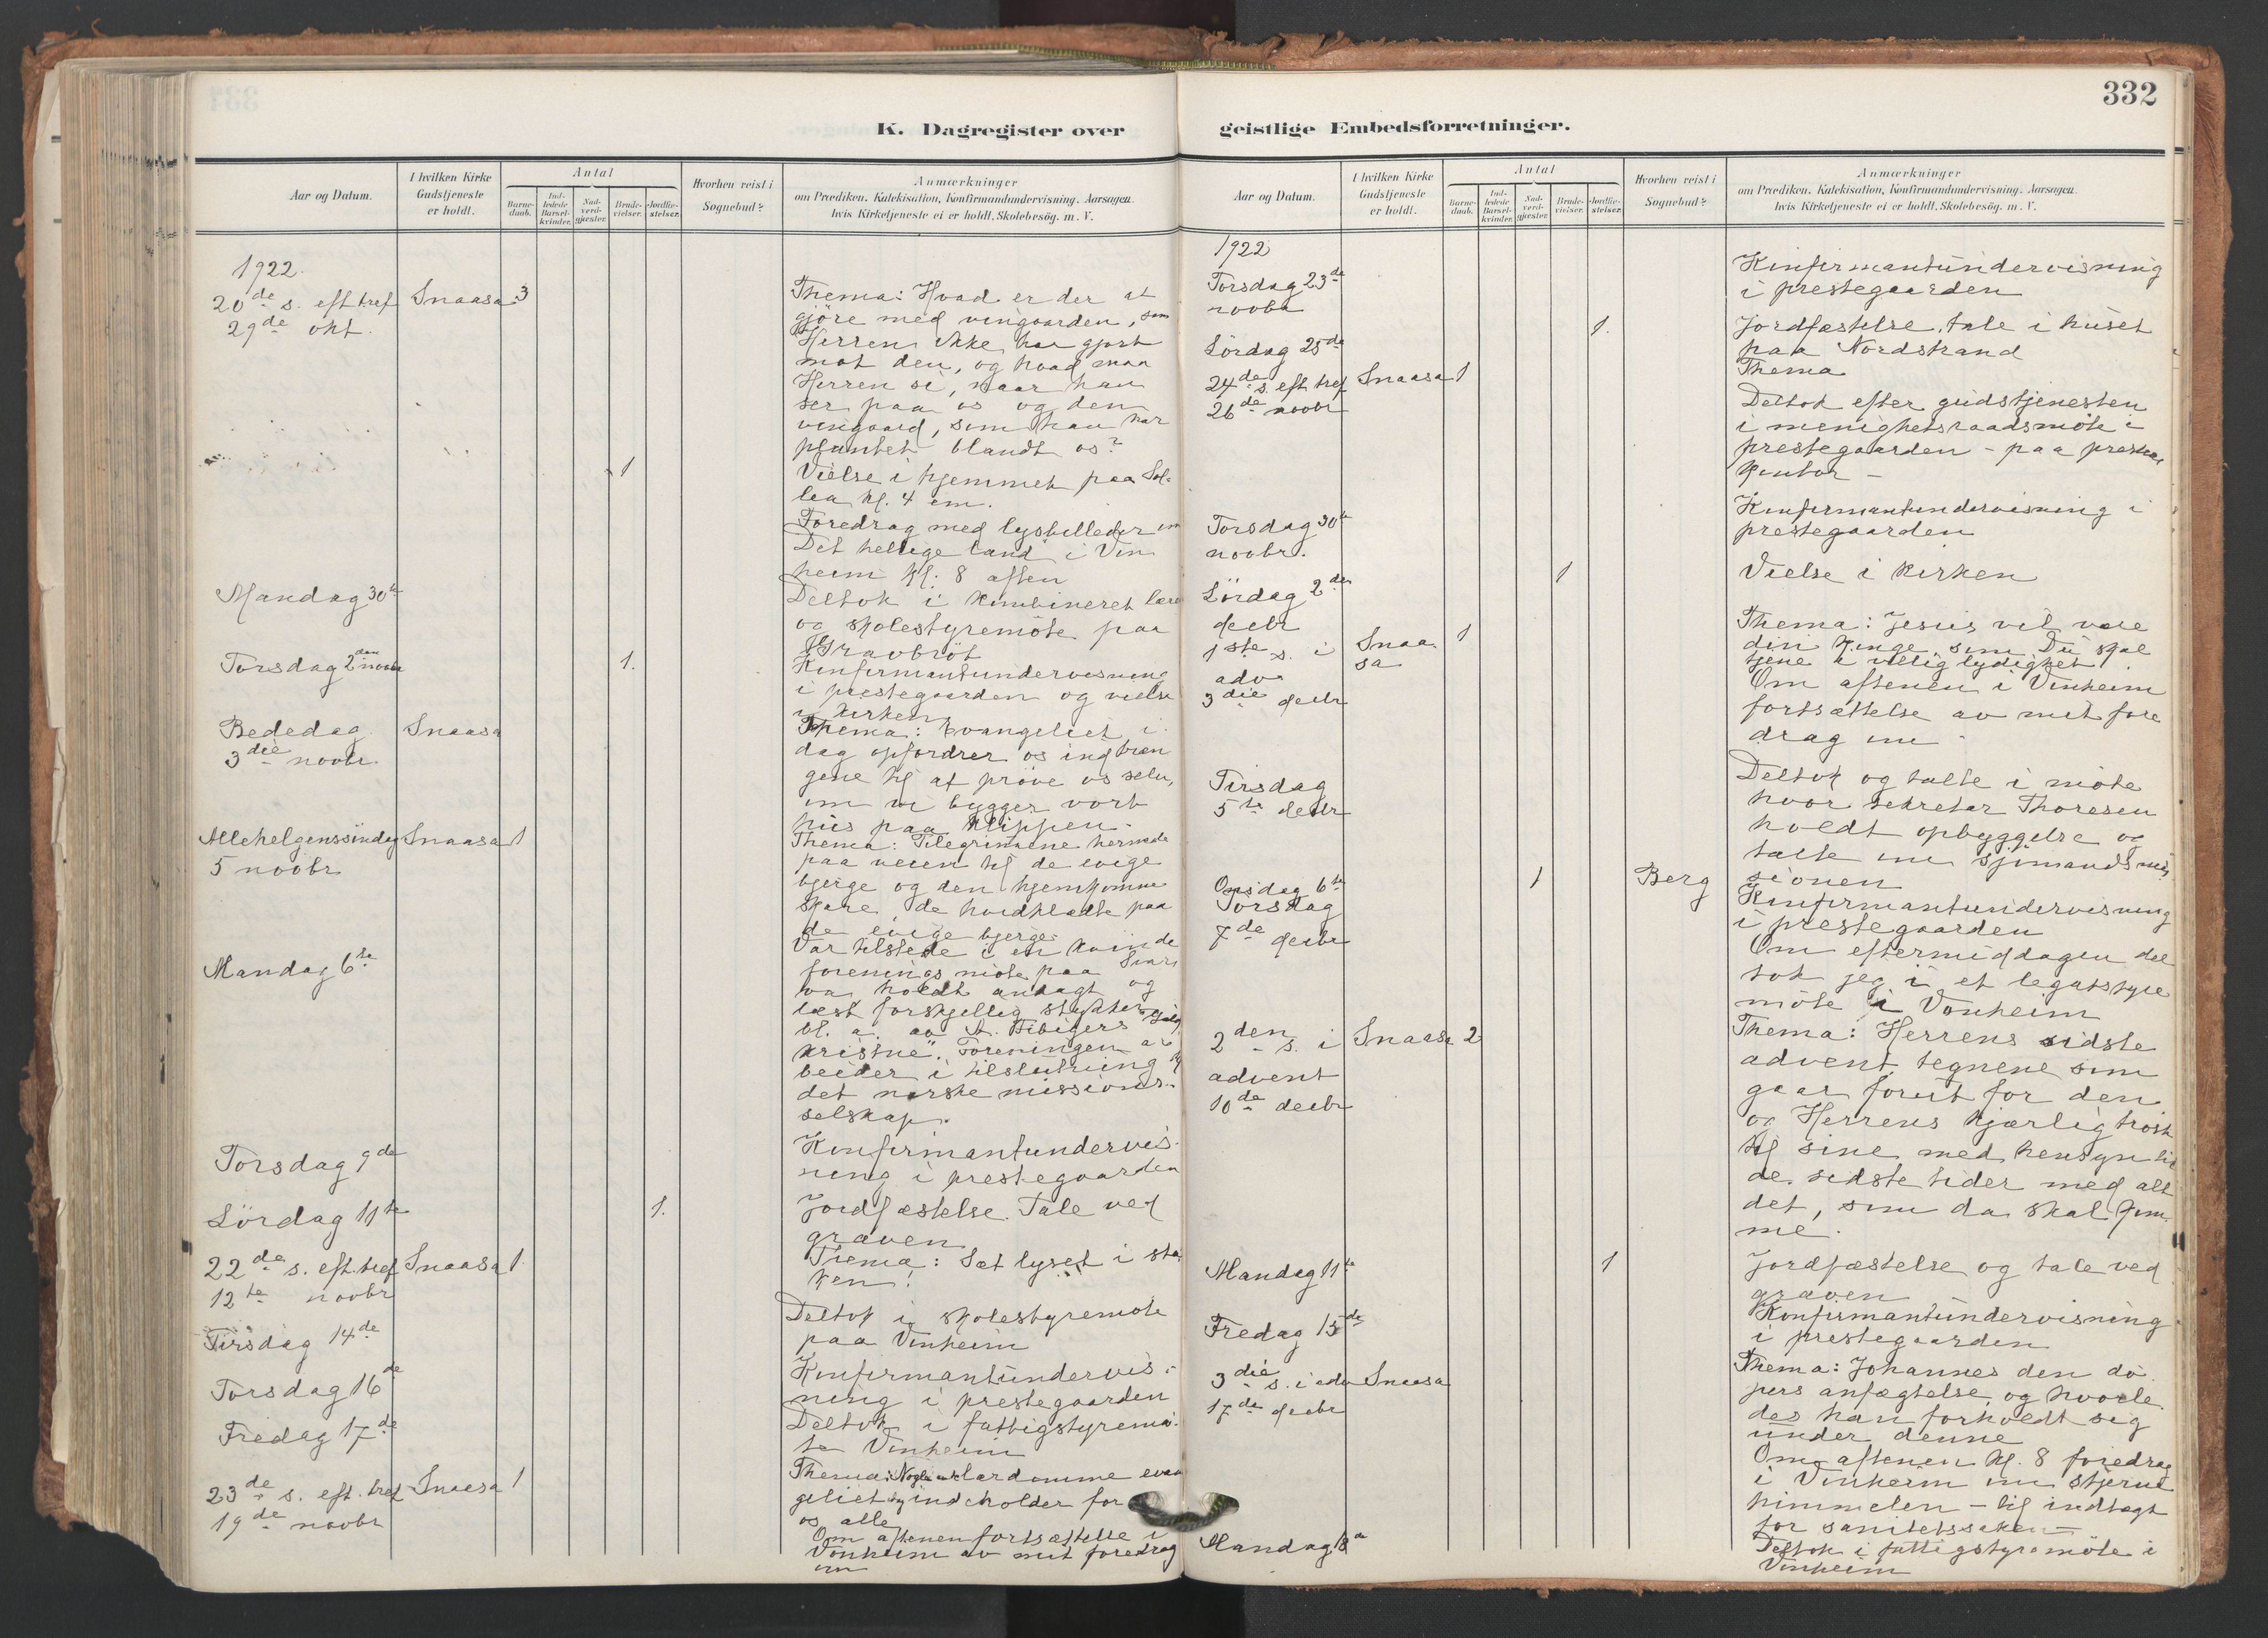 332
K. Dagregister over
geistlige Embedsforretninger.
Aar og Datum.
I hvilken Kirke Gudstjeneste er holdt.
Antal
Barne-daab.
Ind-ledede Barsel-kvinder.
Nad-verd-gjester.
Brude-vielser.
Jordfæ-stelser.
Hvorhen reist i Sognebud?
Anmærkninger
om Prædiken, Katekisation, Konfirmandundervisning. Aarsagen,
hvis Kirketjeneste ei er holdt. Skolebesög. m. V.
1922.
20de s. eft tref Snaasa 3
29de okt.
Thema: Hvad er der at
gjöre med vingaarden, som
Herren ikke har gjort
mot den, og hvad maa
Herren si, naar han
ser paa os og den
vingaard, som han har
plantet blandt os?
1
Vielse i hjemmet paa Sol-
lea kl. 4 em.
Foredrag med lysbilleder om
Det hellige land i Vin
heim kl. 8 aften
Mandag 30te
Deltok i kombineret lærer
og skolestyremöte paa
Gravbröt
Torsdag 2den novbr 1.
Konfirmantundervisning
i prestegaarden og vielse
i kirken
Bededag Snaasa
3die novbr.
Thema: Evangeliet i
dag opfordrer os indtræn
gene til at pröve os selv,
om vi bygger vort
hus paa klippen.
Allehelgenssöndag Snaasa 1
5 novbr
Thema: Pilegrimmene hernede
paa veien til de evige
bjerge og den hjemkomne
skare, de hvidklædte paa
de evige bjerge
Mandag 6te
Var tilstede i en kvinde
forenings möte paa
va holdt andagt og
læst forskjellig stykker
bl. a. av A. Fibigers
kristne". Foreningen ar
beider i tilslutning til
det norske missions-
selskap.
Torsdag 9de
Konfirmantundervis-
ning i prestegaarden
Lördag 11te 1.
Jordfæstelse. Tale ved
graven
22de s. eft. tref Snaasa 1.
12te novbr
Thema: Sæt lyset i sta
ken!
Tirsdag 14de
Deltok i skolestyremöte
paa Vinheim
Torsdag 16de
Konfirmantundervis-
ning i prestegaarden
Fredag 17de
Deltok i fattigstyremö-
te Vinheim
23de s. eft. tref Snaasa 1
19de novbr
Thema: Nogle av lærdomme evan
geliet indeholder for
os alle
Om aftenen fortsættelse i
Vonheim av mit foredrag
om
Aar og Datum.
I hvilken Kirke Gudstjeneste er holdt.
Antal
Barne-daab.
Ind-ledede Barsel-kvinder.
Nad-verd-gjester.
Brude-vielser.
Jordfæ-stelser.
Hvorhen reist i Sognebud?
Anmærkninger
om Prædiken, Katekisation, Konfirmandundervisning. Aarsagen,
hvis Kirketjeneste ei er holdt. Skolebesög. m. V.
1922
Torsdag 23de
novbr
Konfirmantundervisning
i prestegaarden
Lördag 25de 1.
Jordfæstelse, tale i huset
paa Nordstrand
24de s. eft tref Snaasa 1
26de novbr
Thema
Deltok efter gudstjenesten
i menighetsraadsmöte i
prestegaarden - paa prestens
kontor -
Torsdag 30te
novbr.
Konfirmantundervisning i
prestegaarden
Lördag 2den 1
decbr
Vielse i kirken
1ste s. i Snaa 1
adv. sa
3die decbr
Thema: Jesus vil være
din konge, som Du skal
tjene i villig lydighet!
Om aftenen i Vinheim
fortsættelse av mit fore
drag om
Tirsdag
5te decbr
Deltok og talte i möte
hvor sekretær Thoresen
holdt opbyggelse og
talte om sjömandsmis
sionen
Onsdag 6te 1 Berg
Torsdag
7de decbr
Konfirmantundervisning
i prestegaarden
Om eftermiddagen del
tok jeg i et legatstyre
möte i Vonheim
2den s. i Snaasa 2
advent
10de decbr
Thema: Herrens sidste
advent, tegnene som
gaar forut for den
og Herrens kjærlig tröst
til sine med hensyn til
de sidste tider med alt
det, som da skal kom-
me.
Mandag 11te 1
Jordfæstelse og tale ved
graven
Fredag 15de
Konfirmantundervisning
i prestegaarden
3die s. i adv Snaasa
17de decbr
Thema: Johannes den dö
pers anfægtelse, og hvorle
des han forholdt sig
under denne
Om aftenen kl. 8 foredrag
i Vinheim om stjerne
himmelen - til indtægt
for sanitetssaken -
Mandag 18de
Deltok i fattigstyremöte i
Vinheim